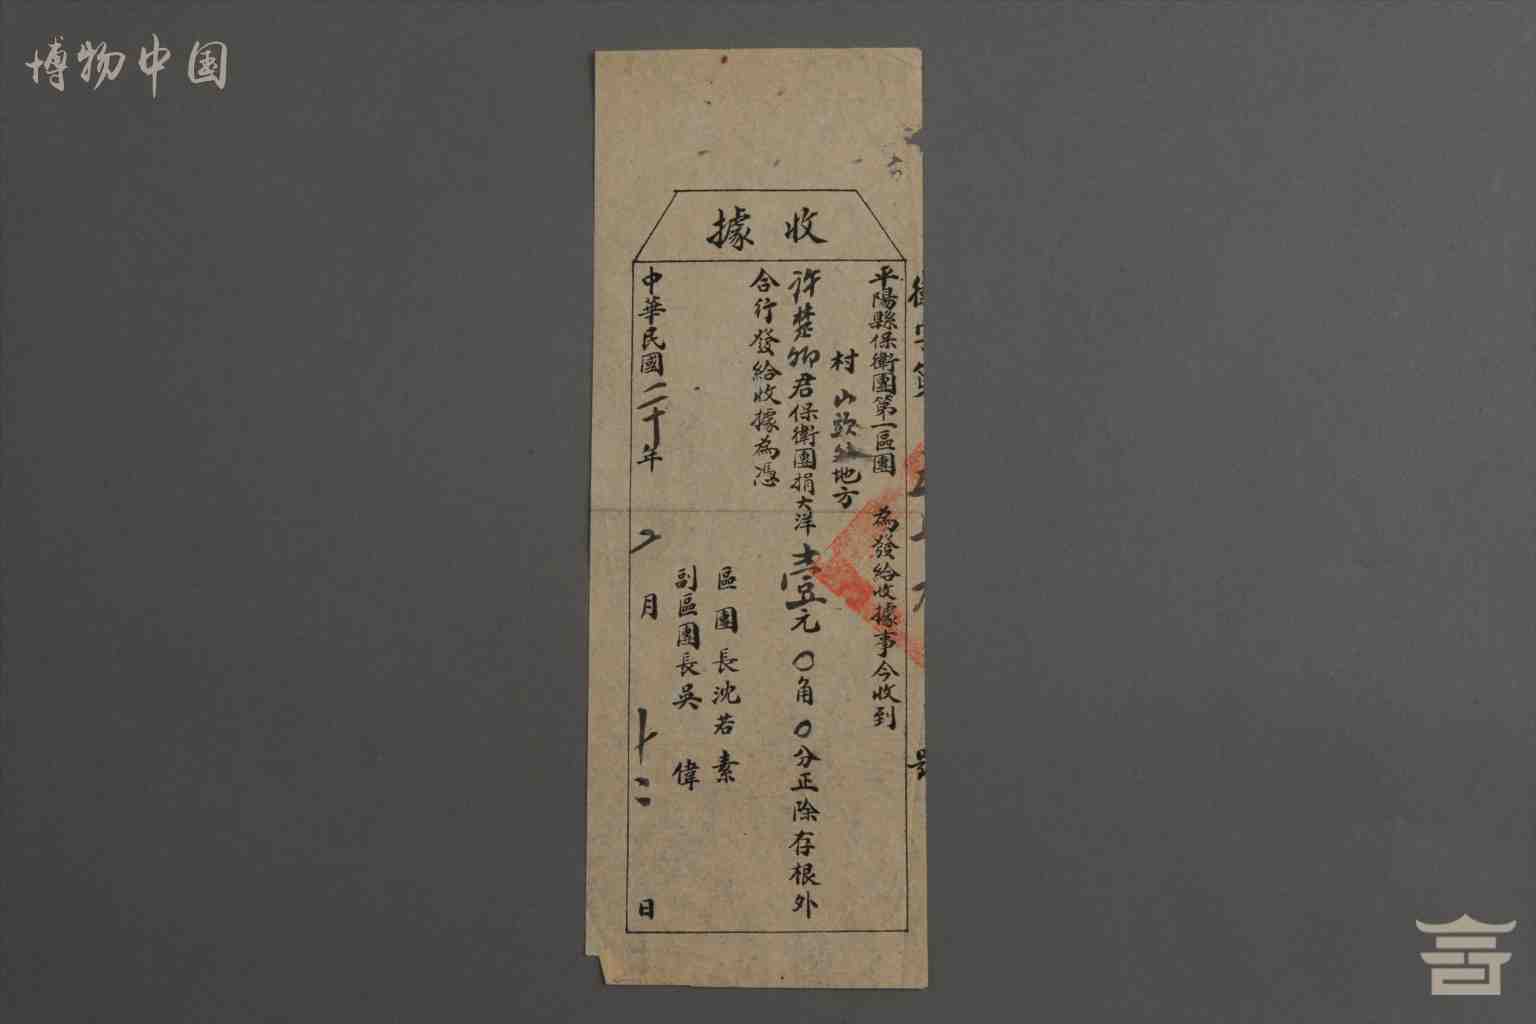 博物中国
收據
平陽縣保衛團第一區團 為發給收據事今收到
村山頭 地方
許楚卿君保衛團捐大洋壹元〇角〇分正除存根外
合行發給收據為憑
區團長沈若素
副區團長吳偉
中華民國二十年 月十二日